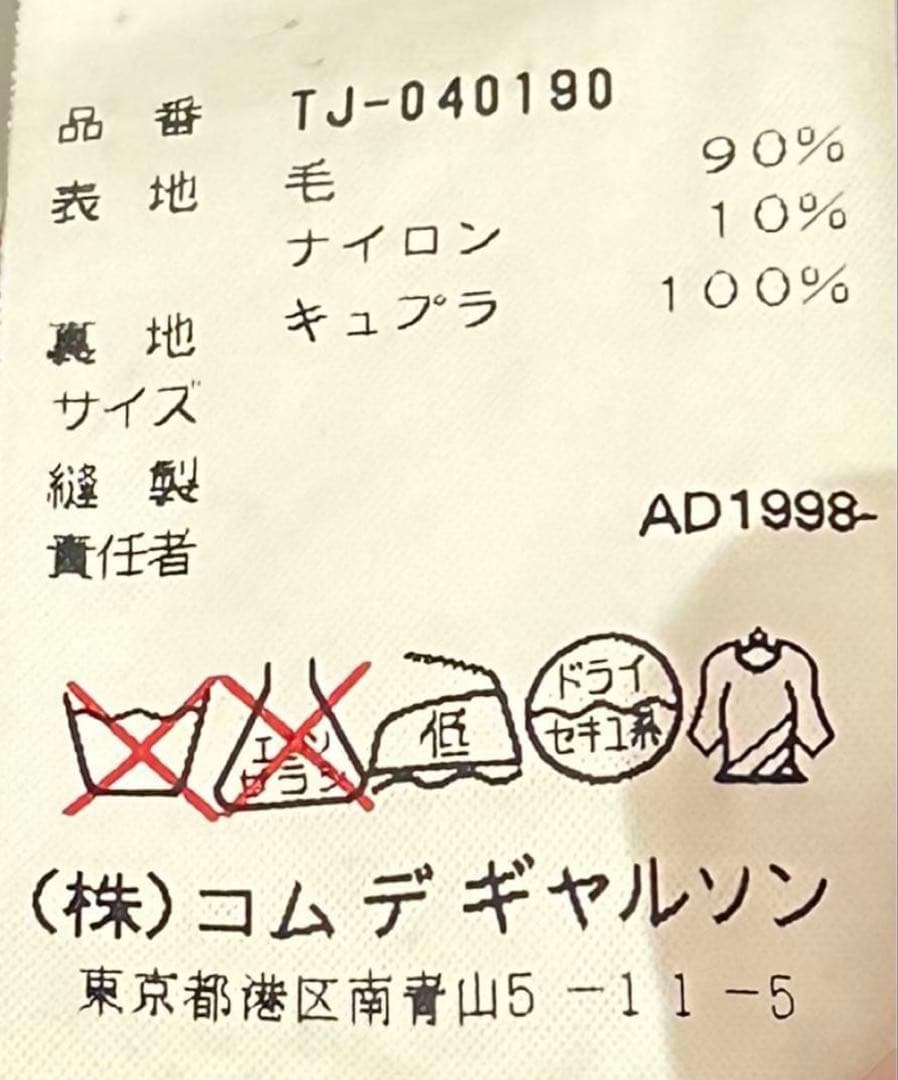 品番 TJ-040190
表地 毛 90%
ナイロン 10%
裏地 キュプラ 100%
サイズ
縫製
責任者
AD1998-
エンソ
サラシ
低
ドライ
セキユ系
(株)コムデギャルソン
東京都港区南青山5-11-5